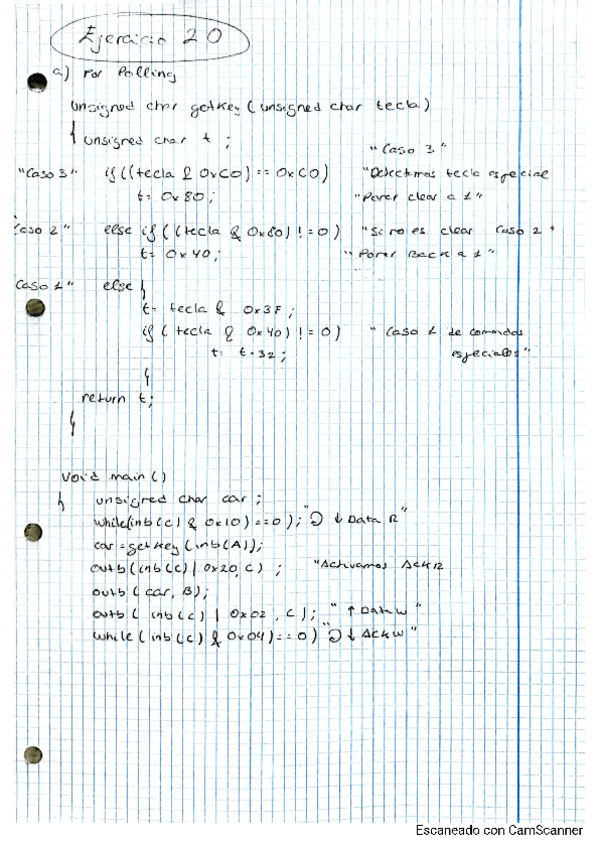 Ejercicio 20
a) Por Polling
unsigned char getKey (unsigned char tecla)
{ unsigned char t ;
"Caso 3"
"Caso 3" if ((tecla & 0xC0) == 0xC0) "Detectamos tecla especial
t = 0x80; "Poner clear a 1"
Caso 2" else if ((tecla & 0x80) != 0) "Si no es clear Caso 2"
t = 0x40; "Poner Back a 1"
Caso 1" else {
t = tecla & 0x3F;
if ( tecla & 0x40) != 0) " Caso 1 de comandos
t = t - 32; especiales"
{
return t;
{
Void main ()
{ unsigned char car ;
while(inb(C) & 0x10) == 0); ↓ Data R"
car = getKey (inb(A));
outb(inb(C) | 0x20, C) ; "Activamos AckR
outb ( car, B);
outb ( inb(C) | 0x02 , C); " ↑ Data W "
while ( inb(C) & 0x04) == 0) ↓ AckW "
Escaneado con CamScanner